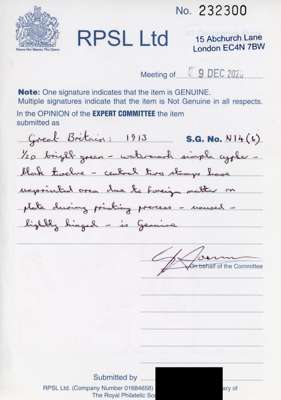 No. 232300
RPSL Ltd
15 Abchurch Lane
London EC4N 7BW
Meeting of 9 DEC 202
Note: One signature indicates that the item is GENUINE.
Multiple signatures indicate that the item is Not Genuine in all respects.
In the OPINION of the EXPERT COMMITTEE the item
submitted as
Great Britain: 1913 S.G. No. N14(6)
1/2d bright green - watermark simple cypher -
block twelve - central two stamps have
unprinted area due to foreign matter on
plate during printing process - unused -
lightly hinged - is Genuine
On behalf of the Committee
Submitted by
RPSL Ltd. (Company Number 01684658) ery of
The Royal Philatelic So